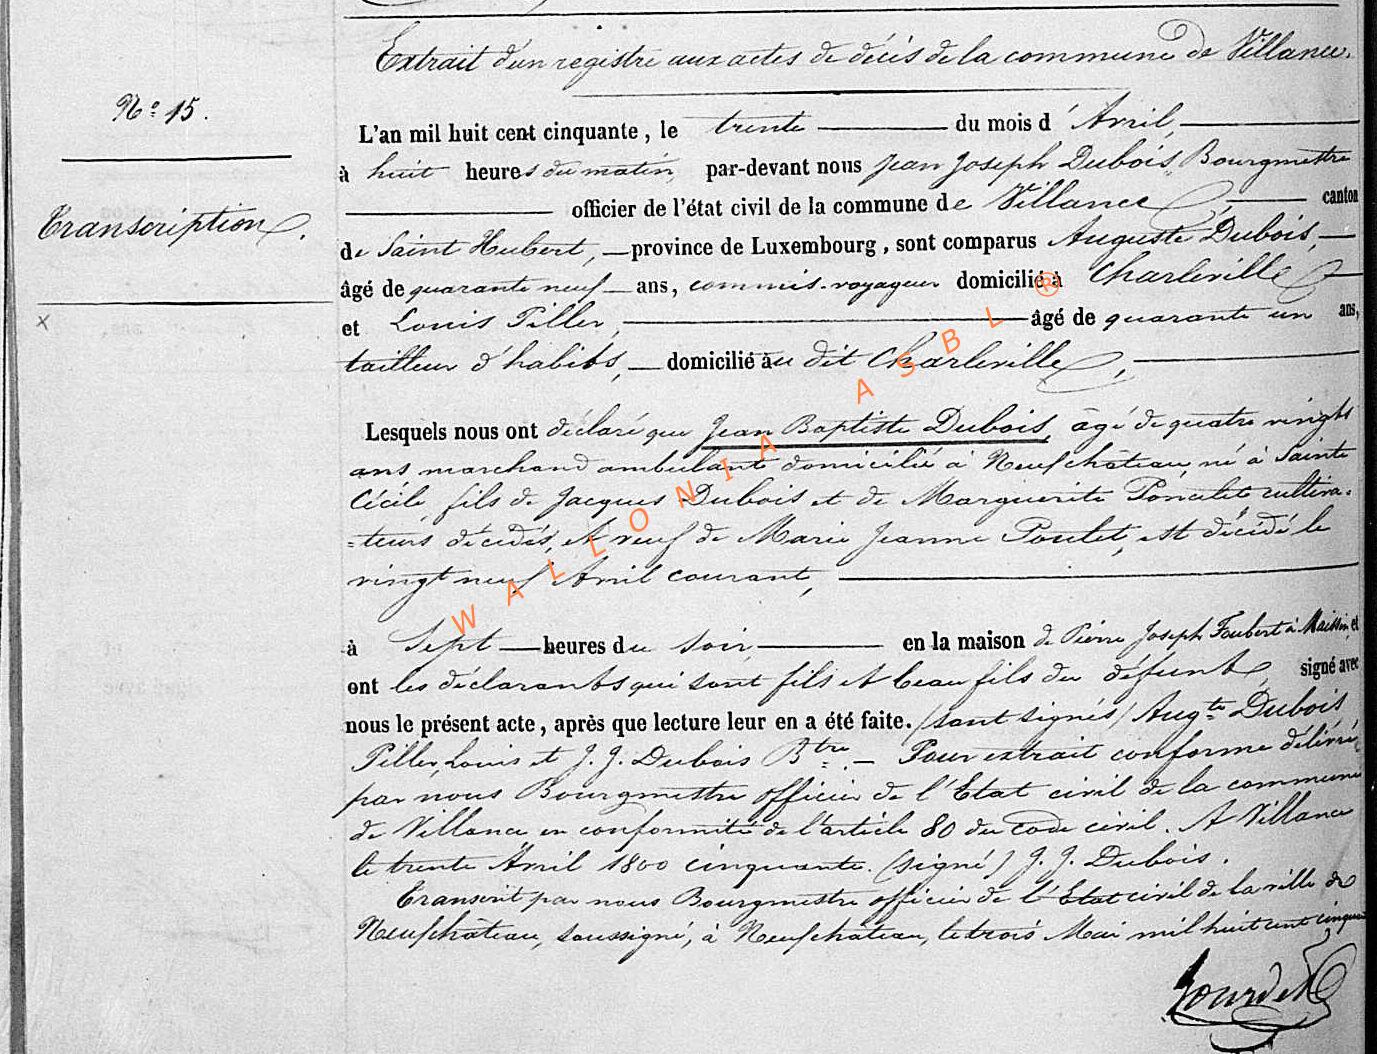 Extrait d'un registre aux actes de décès de la commune de Villance.
N° 15.
L'an mil huit cent cinquante, le trente du mois d'Avril,
à huit heures du matin, par-devant nous Jean Joseph Dubois, Bourgmestre
officier de l'état civil de la commune de Villance, canton
Transcription.
de Saint Hubert, province de Luxembourg, sont comparus Auguste Dubois,
âgé de quarante neuf ans, commis-voyageur domicilié à Charleville
et Louis Piller, âgé de quarante un ans,
tailleur d'habits, domicilié au dit Charleville,
Lesquels nous ont déclaré que Jean Baptiste Dubois, âgé de quatre vingts
ans marchand ambulant domicilié à Neufchâteau, né à Sainte
Cécile, fils de Jacques Dubois et de Marguerite Poncelet cultiva=
=teurs décédés, et veuf de Marie Jeanne Poulet, est décédé le
vingt neuf Avril courant,
à Sept heures du soir, en la maison de Pierre Joseph Foubert à Maissin, et
ont les déclarants qui sont fils et beau fils du défunt, signé avec
nous le présent acte, après que lecture leur en a été faite. (sont signés) Augte Dubois
Piller, Louis et J. J. Dubois Btre. — Pour extrait conforme délivré
par nous Bourgmestre officier de l'Etat civil de la commune
de Villance en conformité de l'article 80 du code civil. A Villance
le trente Avril 1800 cinquante. (signé) J. J. Dubois.
Transcrit par nous Bourgmestre officier de l'Etat civil de la ville de
Neufchâteau, soussigné, à Neufchâteau, le trois Mai mil huit cent cinquante
WALLONIA ASBL ®